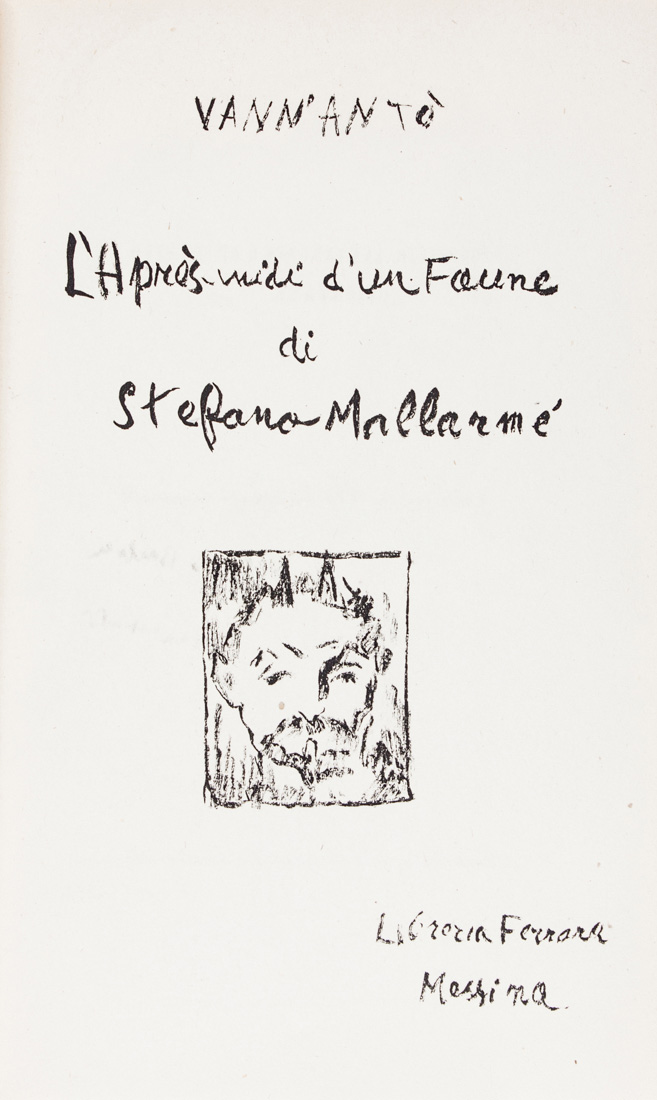 VANN'ANTÒ
L'Après-midi d'un Faune
di
Stefano Mallarmé
Libreria Ferrara
Messina